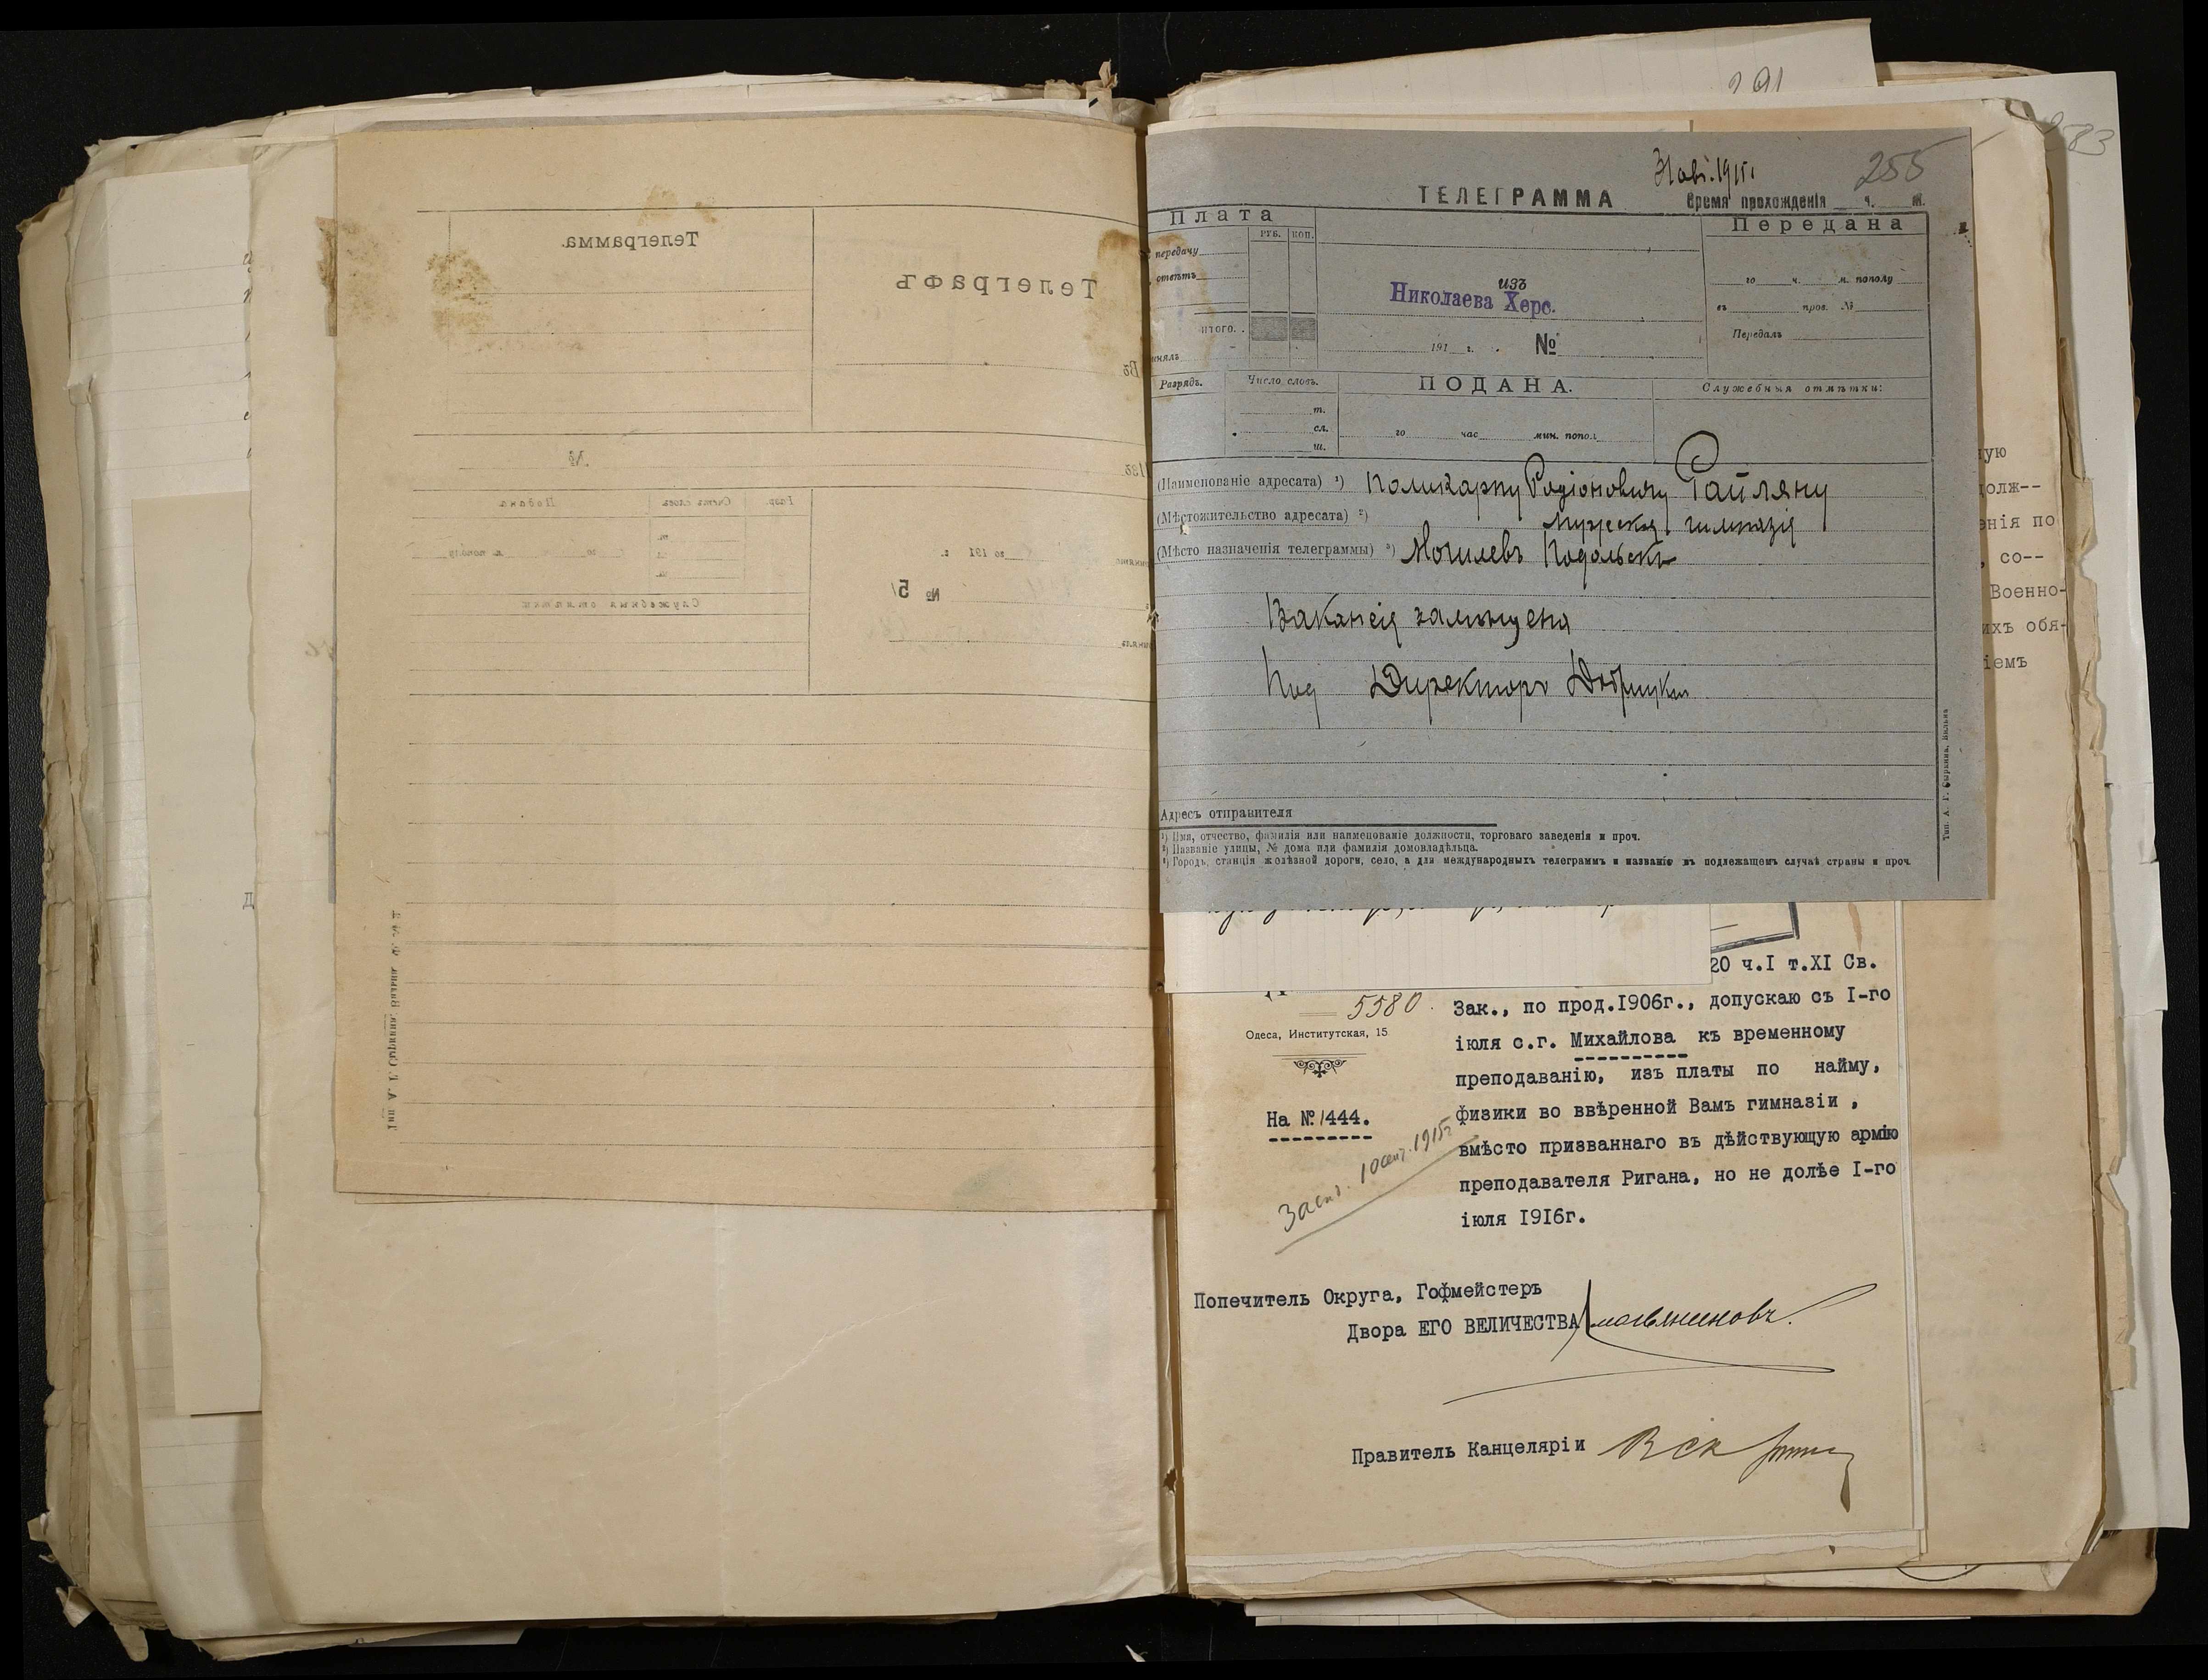 291
583
Телеграмма.
Телеграфъ
Въ
Изъ
№
Разр.
Счетъ словъ
Подана
го 191 г.
№ 5/
Служебныя отмѣтки
255
ТЕЛЕГРАММА
Время прохожденія ч. м.
Плата
РУБ. КОП.
передачу
отвѣтъ
итого.
Передана
го ч. м. пополу
въ пров. №
Передалъ
изъ
Николаева Херс.
191 г. №
Разрядъ.
Число словъ.
ПОДАНА.
Служебныя отмѣтки:
т.
сл.
ш.
го час мин. попол.
(Наименованіе адресата) ¹) Поликарпу Родіоновичу Гайляну
(Мѣстожительство адресата) ²) Мужская гимназія
(Мѣсто назначенія телеграммы) ³) Могилевъ Подольскъ
Вакансія замѣщена
Директоръ
Адресъ отправителя
¹) Имя, отчество, фамилія или наименованіе должности, торговаго заведенія и проч.
²) Названіе улицы, № дома или фамилія домовладѣльца.
³) Городъ, станція желѣзной дороги, село, а для международныхъ телеграммъ и названіе въ подлежащемъ случаѣ страны и проч.
Тип. А. Г. Сыркина, Вильна
ую
долж--
енія по
, со--
Военно-
ихъ обя-
іемъ
20 ч.I т.XI Св.
5580.
Зак., по прод.1906г., допускаю съ I-го
Одеса, Институтская, 15
іюля с.г. Михайлова къ временному
преподаванію, изъ платы по найму,
На № 1444.
физики во ввѣренной Вамъ гимназіи ,
10 сент. 1915г
вмѣсто призваннаго въ дѣйствующую армію
преподавателя Ригана, но не долѣе I-го
іюля 1916г.
Попечитель Округа, Гофмейстеръ
Двора ЕГО ВЕЛИЧЕСТВА Смольяниновъ.
Правитель Канцеляріи